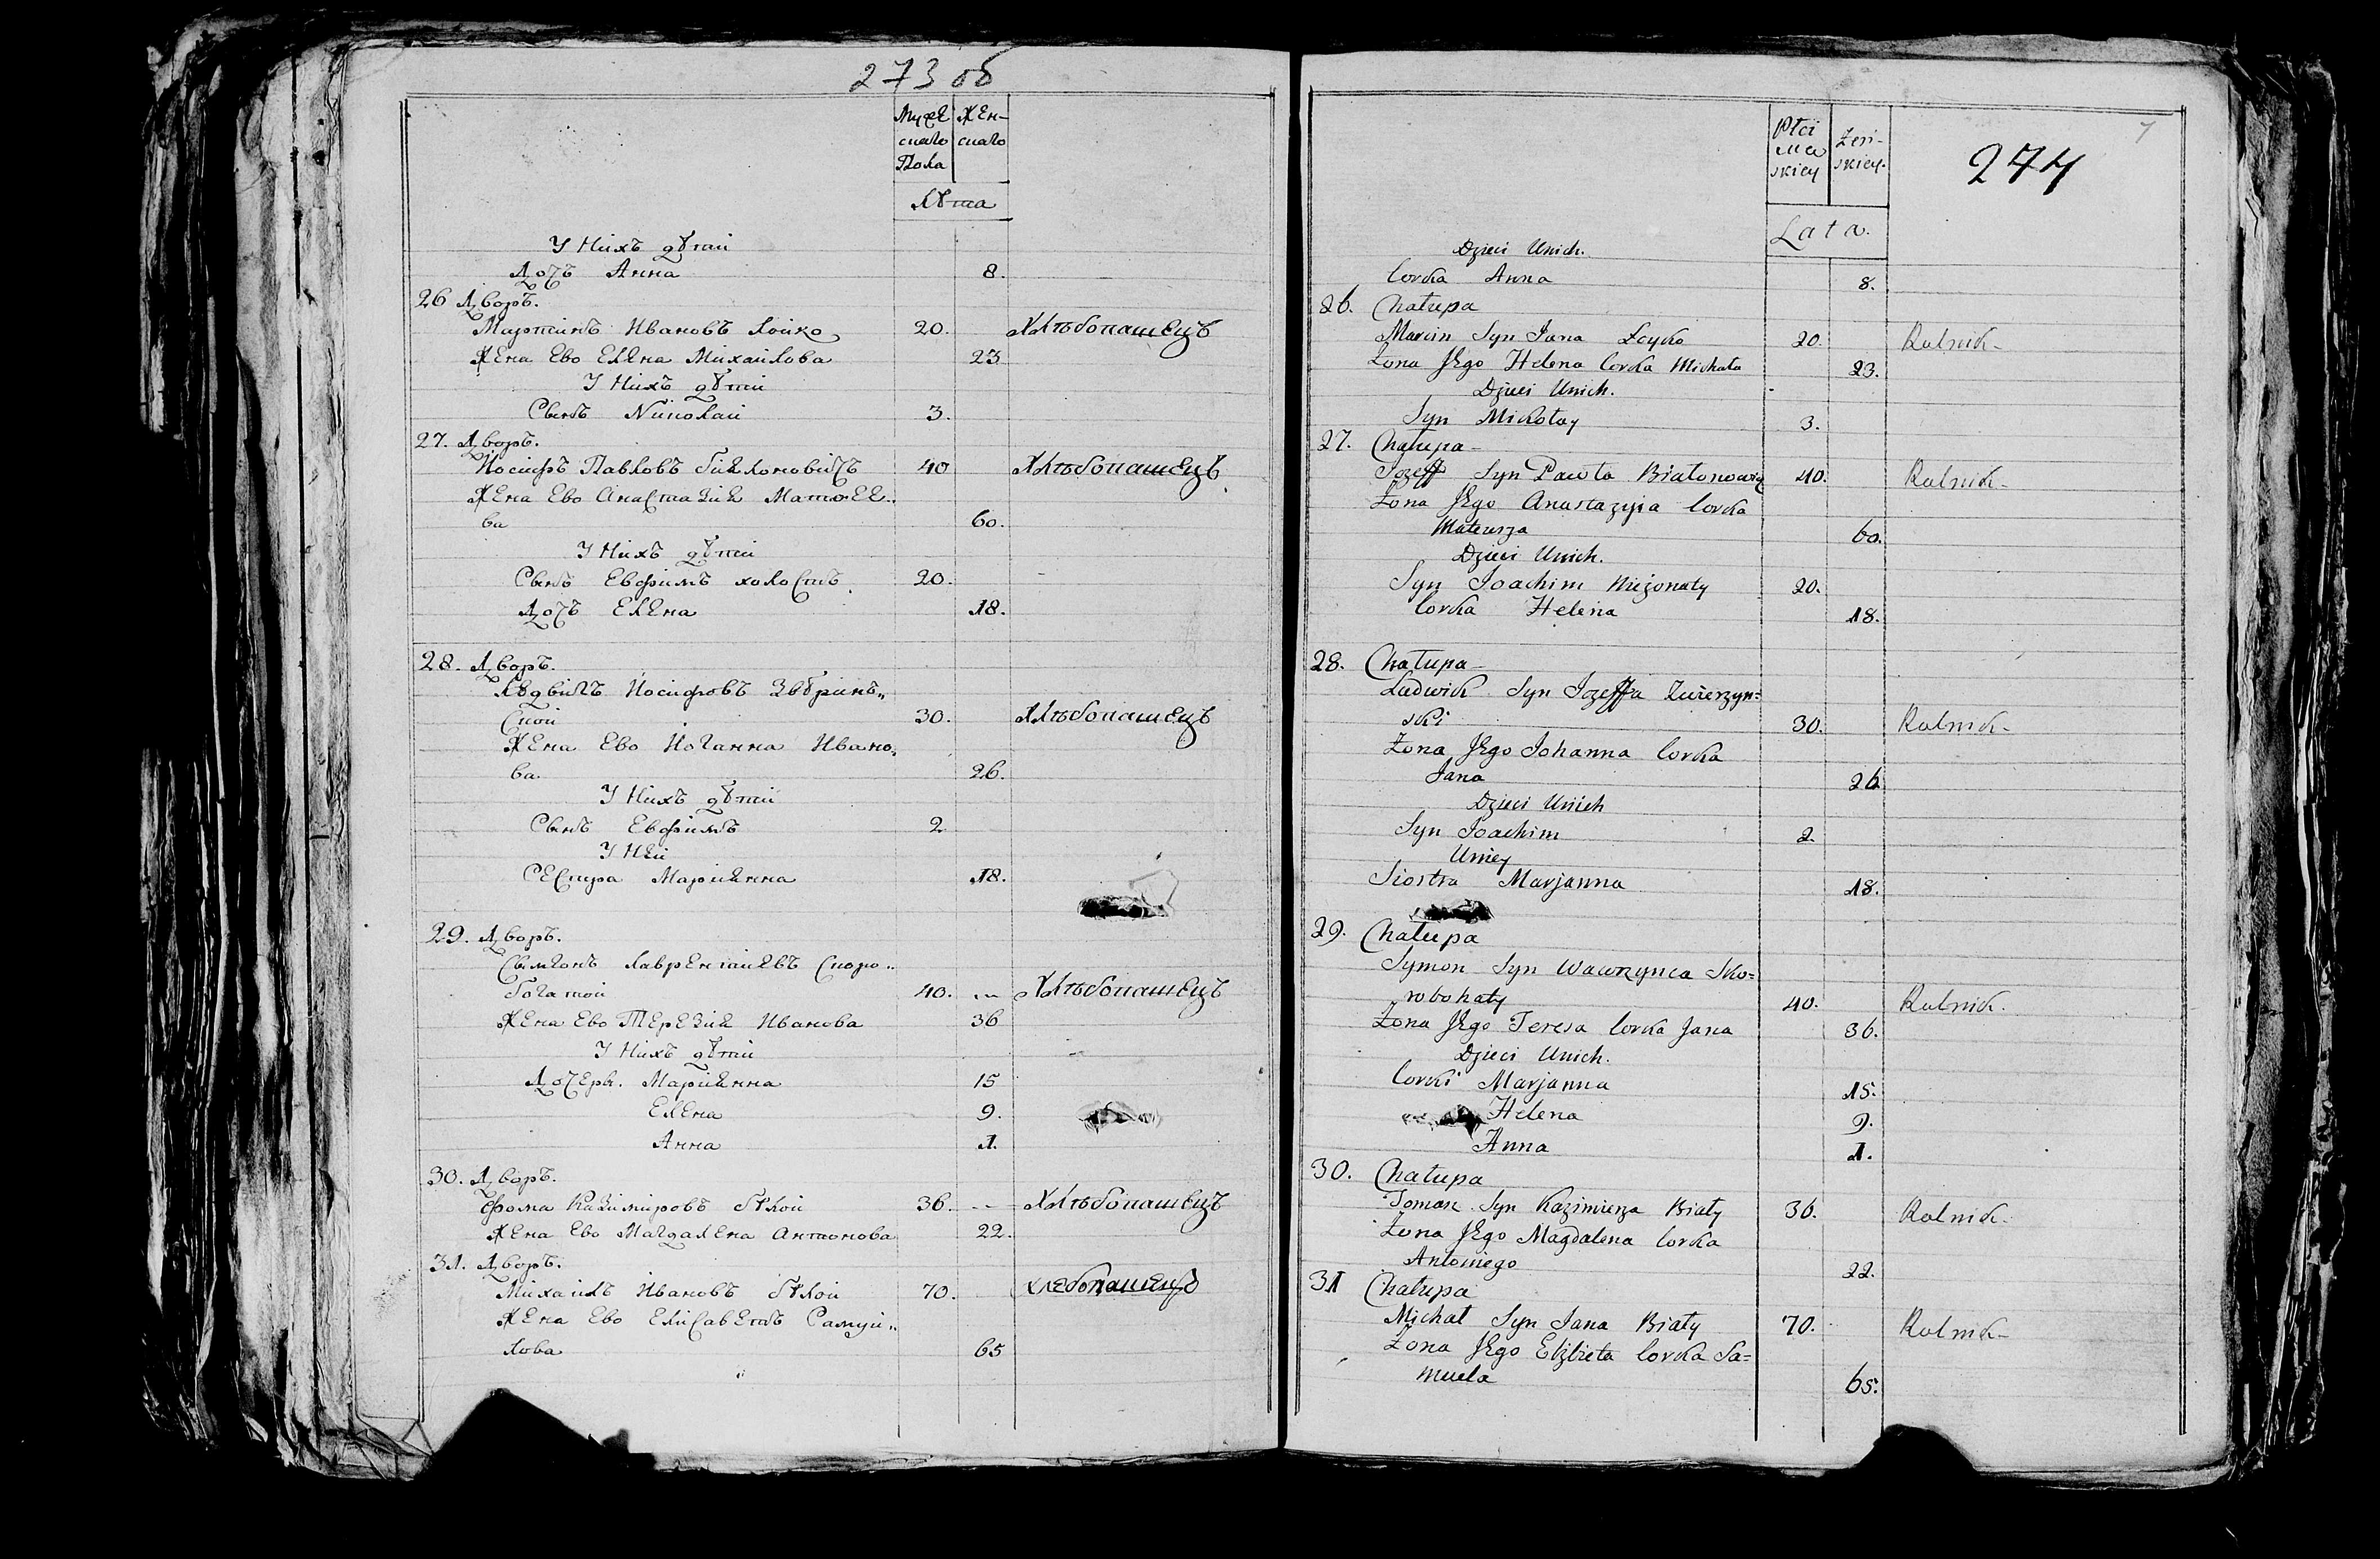 273 об
Мужес
каго
Пола
Жен-
скаго
Лѣта
У Нихъ дѣтей
Дочь Анна 8.
26 Дворъ.
Мартинъ Ивановъ Лойко 20. Хлѣбопашецъ
Жена Ево Елена Михайлова 23
У Нихъ дѣтей
Сынъ Николай 3.
27. Дворъ.
Иосифъ Павловъ Бялоновичъ 40 Хлѣбопашецъ
Жена Ево Анастазия Матфее„
ва 60.
У Нихъ дѣтей
Сынъ Евфимъ холостъ 20.
Дочь Елена 18.
28. Дворъ.
Людвигъ Иосифовъ Звѣринъ„
ской 30. Хлѣбопашецъ
Жена Ево Иоганна Ивано„
ва. 26.
У Нихъ дѣтей
Сынъ Евфимъ 2
У Ней
Сестра Марианна 18.
29. Дворъ.
Сымонъ Лаврентиевъ Скоро„
богатой 40. Хлѣбопашецъ
Жена Ево Терезия Иванова 36
У Нихъ дѣтей
Дочери. Марианна 15
Елена 9.
Анна 1.
30. Дворъ.
Фома Казимировъ Бѣлой 36. Хлѣбопашецъ
Жена Ево Магдалена Антонова 22.
31. Дворъ.
Михайлъ Ивановъ Бѣлой 70. хлебопашецъ
Жена Ево Елисаветъ Самуй„
лова 65
Płci
mę
skiey
Żeń-
skiey.
7
274
Lata.
Dzieci Unich.
Corka Anna 8.
26. Chałupa
Marcin Syn Jana Łoyko 20. Rolnik-
Żona Jego Helena Corka Michała 23.
Dzieci Unich.
Syn Mikołay 3.
27. Chałupa-
Jozeff Syn Pawła Białonowicz 40. Rolnik-
Żona Jego Anastazyia Corka
Mateusza 60.
Dzieci Unich.
Syn Joachim Nieżonaty 20.
Corka Helena 18.
28. Chałupa-
Ludwik Syn Jozeffa Zwierzyn=
ski 30. Rolnik-
Żona Jego Johanna Corka
Jana 26
Dzieci Unich
Syn Joachim 2.
Uniey
Siostra Marjanna 18.
29. Chałupa
Symon Syn Wawrzynca Sko=
robohaty 40. Rolnik.
Żona Jego Teresa Corka Jana 36.
Dzieci Unich.
Corki Marjanna 15.
Helena 9.
Anna 1.
30. Chałupa
Tomasz Syn Kazimierza Biały 36. Rolnik-
Żona Jego Magdalena Corka
Antoniego 22.
31 Chałupa
Michał Syn Jana Biały 70. Rolnik-
Żona Jego Elżbieta Corka Sa=
muela 65.